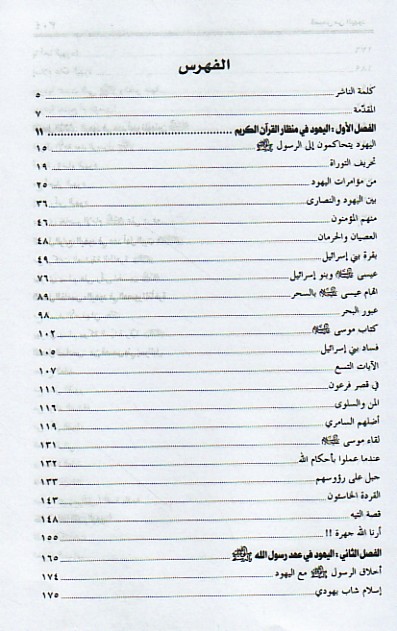 الفهرس
كلمة الناشر ........ ٥
المقدّمة ........ ٧
الفصل الأول : اليهود في منظار القرآن الكريم ........ ١١
اليهود يتحاكمون إلى الرسول ﷺ ........ ١٥
تحريف التوراة ........ ١٩
من مؤامرات اليهود ........ ٢٥
بين اليهود والنصارى ........ ٣٦
منهم المؤمنون ........ ٤٦
العصيان والحرمان ........ ٤٨
بقرة بني إسرائيل ........ ٤٩
عيسى وبنو إسرائيل ........ ٧٦
اتهام عيسى بالسحر ........ ٨٩
عبور البحر ........ ٩٨
كتاب موسى ........ ١٠٢
فساد بني إسرائيل ........ ١٠٥
الآيات التسع ........ ١٠٧
في قصر فرعون ........ ١١١
المن والسلوى ........ ١١٦
أضلهم السامري ........ ١١٩
لقاء موسى ........ ١٣١
عندما عملوا بأحكام الله ........ ١٣٢
جبل على رؤوسهم ........ ١٣٣
القردة الخاسئون ........ ١٤٣
قصة التيه ........ ١٤٨
أرنا الله جهرة !! ........ ١٥٥
الفصل الثاني : اليهود في عهد رسول الله ﷺ ........ ١٦٥
أخلاق الرسول ﷺ مع اليهود ........ ١٧٤
إسلام شاب يهودي ........ ١٧٥